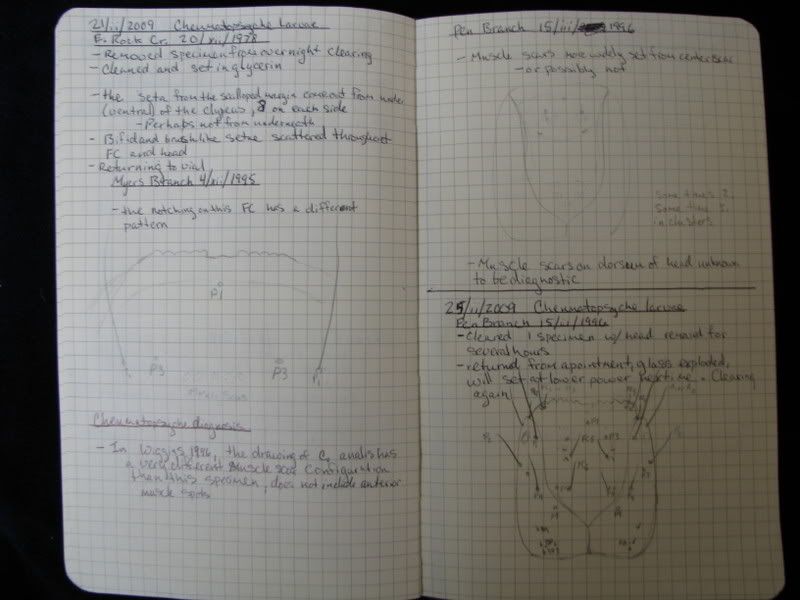 21/ii/2009 Cheumatopsyche larvae
E. Rock Cr. 20/xii/1978
- Removed specimen from overnight clearing
- Cleaned and set in glycerin
- the seta from the scalloped margin come out from under
(ventral) of the clypeus, 8 on each side
- Perhaps not from underneath
- Bifid and brushlike setae scattered throughout
FC and head
- Returning to vial
Myers Branch 4/xii/1995
- the notching on this FC has a different
pattern
P1
P3
P3
Muscle scars
Cheumatopsyche diagnosis
- In Wiggins 1996, the drawing of C. analis has
a very different muscle scar configuration
than this specimen, does not include anterior
muscle spots
Pen Branch 15/iii/1996
- Muscle scars more widely set from center
- or possibly not
Sometimes 2,
Sometimes 3,
in clusters
- Muscle scars on dorsum of head unknown
to be diagnostic
25/ii/2009 Cheumatopsyche larvae
Pen Branch 15/iii/1996
- Cleared 1 specimen w/ head removed for
several hours
- returned from apointment, glass exploded,
will set at lower power next time. Clearing
again
P3